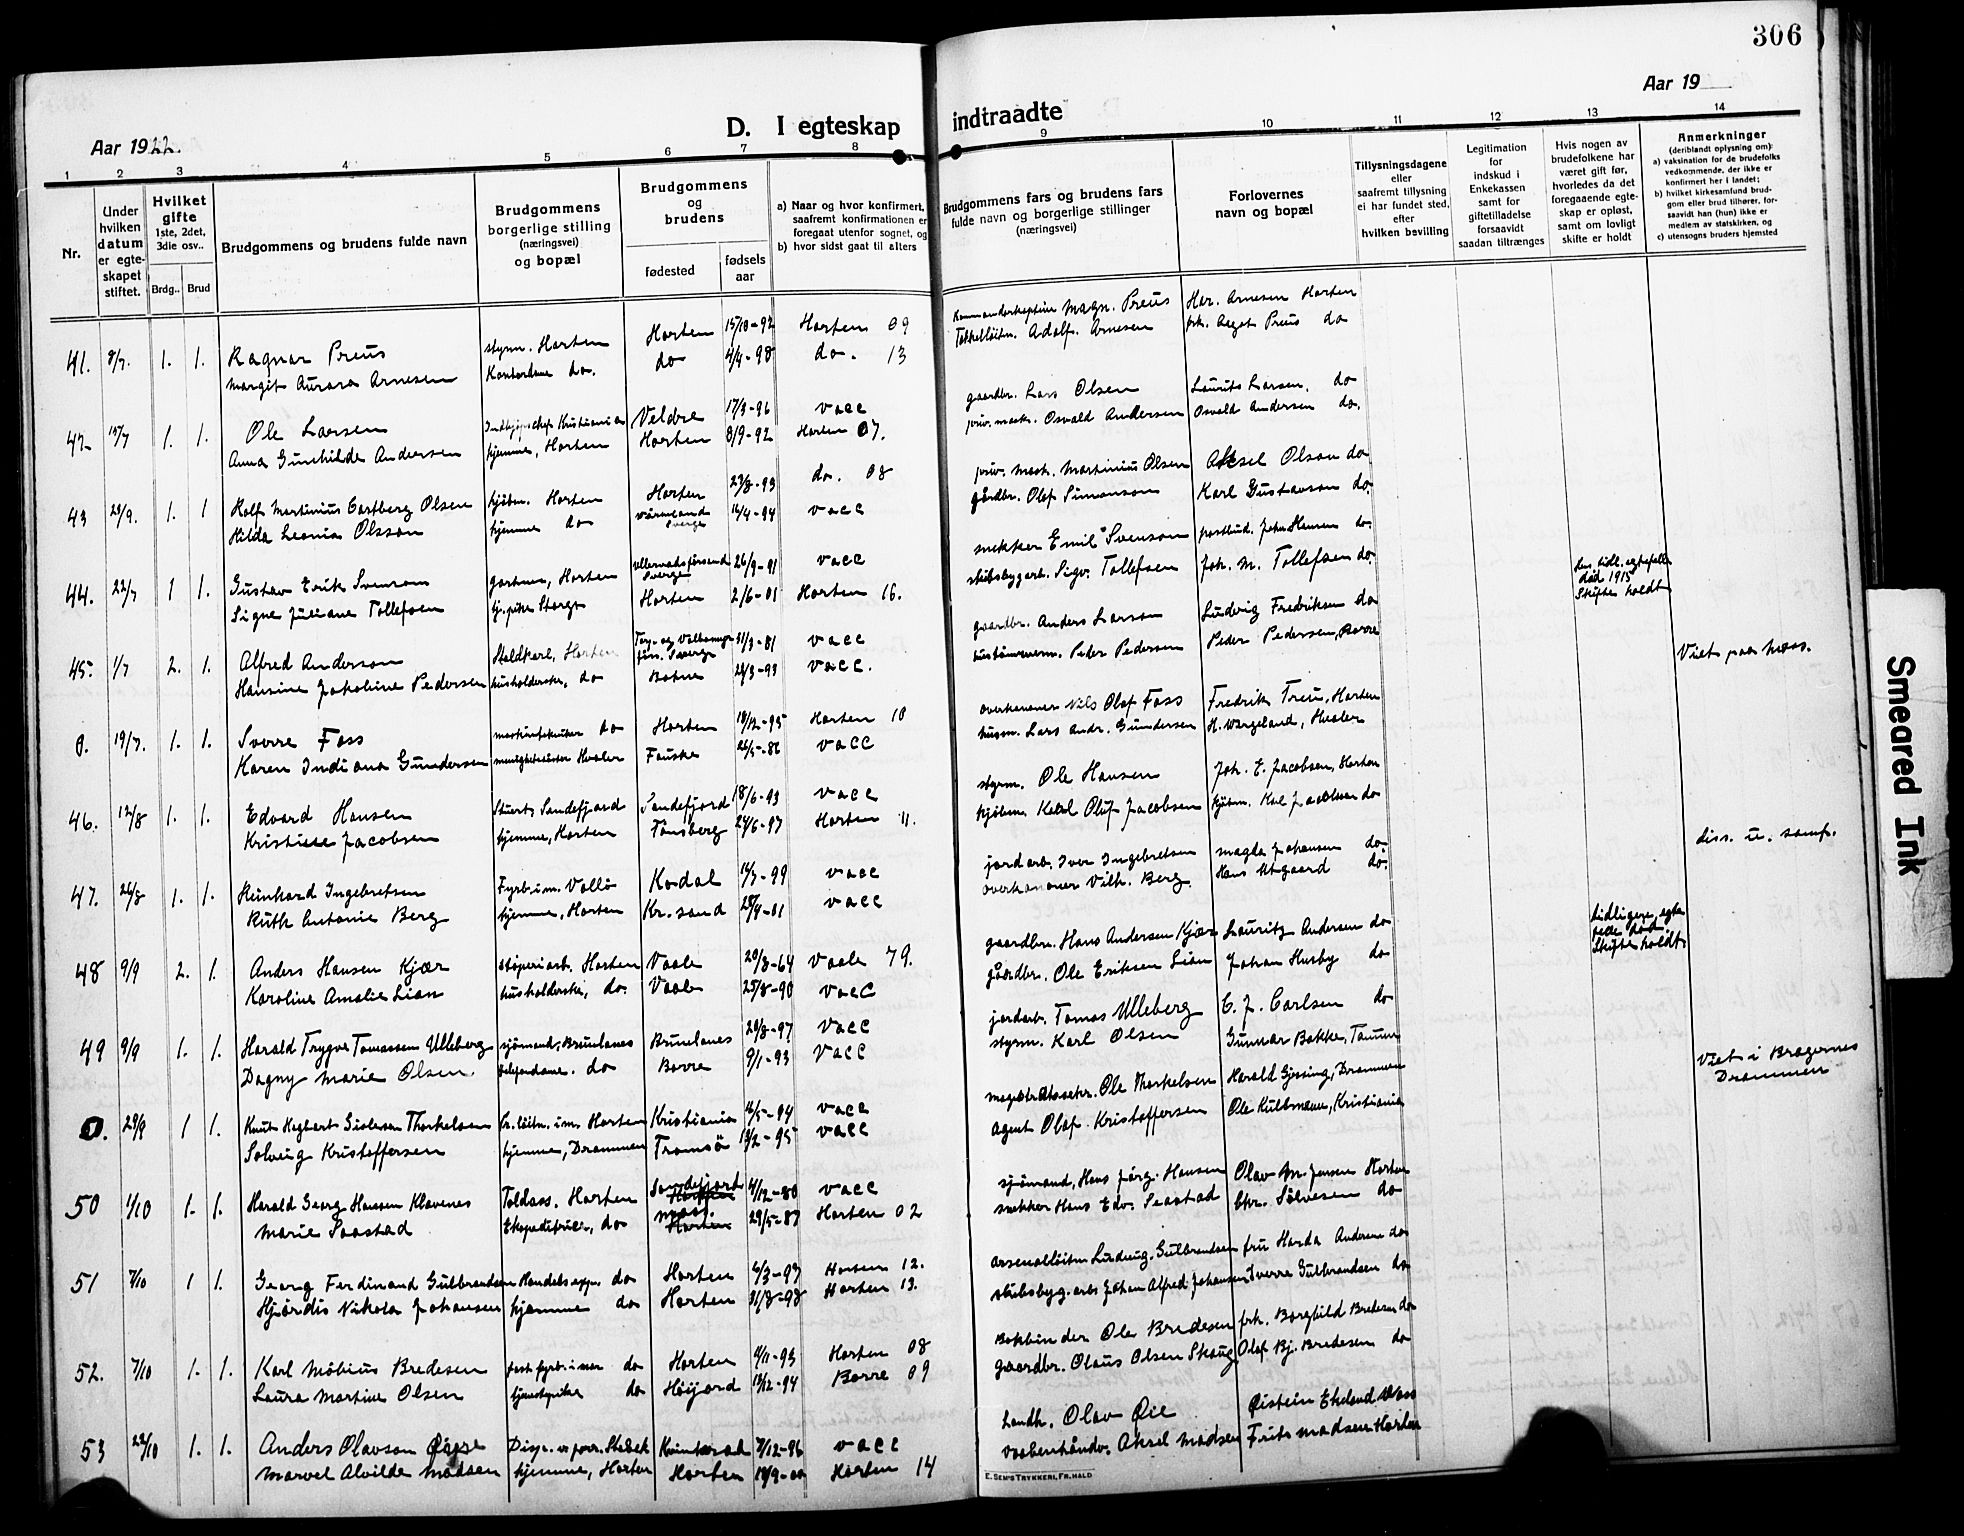 306
Aar 19
Aar 1922.
D. I egteskap indtraadte
1 2 3 4 5 6 7 8 9 10 11 12 13 14
Nr.
Under hvilken datum er egteskapet stiftet.
Hvilket gifte 1ste, 2det, 3die osv..
Brdg.. Brud
Brudgommens og brudens fulde navn
Brudgommens borgerlige stilling (næringsvei) og bopæl
Brudgommens og brudens
fødested
fødsels aar
a) Naar og hvor konfirmert, saafremt konfirmationen er foregaat utenfor sognet, og
b) hvor sidst gaat til alters
Brudgommens fars og brudens fars fulde navn og borgerlige stillinger (næringsvei)
Forlovernes navn og bopæl
Tillysningsdagene eller saafremt tillysning ei har fundet sted, efter hvilken bevilling
Legitimation for indskud i Enkekassen samt for giftetilladelse forsaavidt saadan tiltrænges
Hvis nogen av brudefolkene har været gift før, hvorledes da det foregaaende egteskap er opløst, samt om lovligt skifte er holdt
Anmerkninger (deriblandt oplysning om):
a) vaksination for de brudefolks vedkommende, der ikke er konfirmert her i landet;
b) hvilket kirkesamfund brudgom eller brud tilhører, forsaavidt han (hun) ikke er medlem av statskirken, og
c) utensogns bruders hjemsted
41. 8/7. 1. 1. Ragnar Preus styrm. Horten Horten 15/10-92 Horten 09 Magn. Preus Har. Arnesen Horten
Margit Aurora Arnesen do. do 4/4-98 do. 13 Adolf Arnesen frk. Aagot Preus do
42 15/7 1. 1. Ole Larsen Kristiania Veldre 17/9-96 vacc gaardbr. Lars Olsen Laurits Larsen, do
Anna Gunhilde Andersen hjemme, Horten Horten 8/9-92 Horten 07. priv. mask. Osvald Andersen Osvald Andersen do.
43 29/9. 1. 1 Rolf Martinius Castberg Olsen Horten Horten 23/8-93 do. 08 priv. mask. Martinius Olsen Aksel Olson do
Hilda Leonia Olsson hjemme do Värmland Sverge 16/4-94 vacc gårdbr. Olof Simonson Karl Gustavson do.
44. 22/7 1 1. Gustav Erik Svenson gartner, Horten Sverge 26/9-91 vacc snekker Emil Svenson postbud. Johs Hansen do.
Signe Juliane Tollefsen Horten 2/6-01 Horten 16. skibsbyggarb. Sigv. Tollefsen Joh. M. Tollefsen do.
45 1/7 2. 1. Alfred Anderson Staldkarl, Horten Sverge 31/3-81 vacc gaardbr. Anders Larson Ludvig Fredriksen do død 1915 Skifte holdt
Hansine Jakobine Pedersen husholderske, do Botne 24/3-93 vacc. Peder Pedersen Peder Pedersen, Borre Viet paa Moss.
0. 19/7. 1. 1. Sverre Foss do Horten 18/12-95 Horten 10 overkanoner Nils Olaf Foss Fredrik Treu, Horten
Karen Indiana Gundersen menighetssøster Hvaler Fauske 26/5-86 vacc husm. Lars Andr. Gundersen H. Wergeland, Hvaler
46. 12/8 1. 1. Edvard Hansen Stuert, Sandefjord Sandefjord 18/6-93 vacc styrm. Ole Hansen Joh. E. Jacobsen, Horten
Kristine Jacobsen hjemme, Horten Tønsberg 24/6-97 Horten 11. Oluf Jacobsen Karl Jacobsen do
47. 26/8 1. 1. Reinhard Ingebretsen Fyrb. i m. Vallø Kodal 14/7-99 vacc jordarb. Iver Ingebretsen Magda Johansen do. diss. u. samf.
Ruth Antonie Berg hjemme, Horten Kr.sand 28/4-01 vacc overkanoner Vilh. Berg. Hans Utgaard do.
48 9/9 2. 1. Anders Hansen Kjær støperiarb. Horten Vaale 20/8-64 Vaale 79. gaardbr. Hans Andersen Kjær Lauritz Andersen do tidligere egtefelle død. Skifte holdt
Karoline Amalie Lian husholderske, do. Vaale 25/8-90 vacc gårdbr. Ole Eriksen Lian Johan Husby do
49 9/9 1. 1. Harald Trygve Tomassen Ulleberg sjømand, Brunlanes Brunlanes 20/8-97 vacc jordarb. Tomas Ulleberg C. J. Carlsen do
Dagny Marie Olsen. do Borre 9/1-93 vacc styrm. Karl Olsen Gunnar Bakke, Tanum
0. 29/9 1 1. Thorkelsen Pr.løitn. i m. Horten Kristiania 16/5-94 vacc Ole Thorkelsen Harald Gjessing, Drammen Viet i Bragernes Drammen
Solveig Kristoffersen hjemme, Drammen Tromsø 13/2-95 vacc agent Olaf Kristoffersen Ole Kullmann, Kristiania
50 1/10 1. 1. Harald Georg Hansen Klavenes Toldass. Horten Sandefjord 4/12-80 vacc sjømand, Hans Jørg. Hansen Olav M. Jensen Horten
Marie Saastad Ekspeditrice, do Moss. Horten 29/5-87 Horten 02 snekker Hans Edv. Saastad Chr. Sølvesen do
51 7/10 1 1. Georg Ferdinand Gulbrandsen do Horten 6/3-97 Horten 12. Gulbrandsen fru Harda Andersen do
Hjørdis Nikola Johansen hjemme do Horten 31/8-98 Horten 13. Johan Alfred Johansen Sverre Gulbrandsen do
52. 7/10 1. 1. Karl Møbius Bredesen do Horten 4/11-93 Horten 08 Bokbinder Ole Bredesen frk. Borghild Bredesen do
Laura Martine Olsen tjenestepike do Høijord 13/12-94 Borre 09 gaardbr. Olaus Olsen Skaug Olaf Bj. Bredesen do
53 22/10 1. 1. Anders Olavson Stabæk 7/12-96 vacc Landh. Olav Øie Øistein Ekeland Moss
Marvel Alvilde Madsen hjemme, Horten Horten Horten 14 Aksel Madsen Frits Madsen Horten
E. SEM'S TRYKKERI, FR.HALD
Smeared Ink